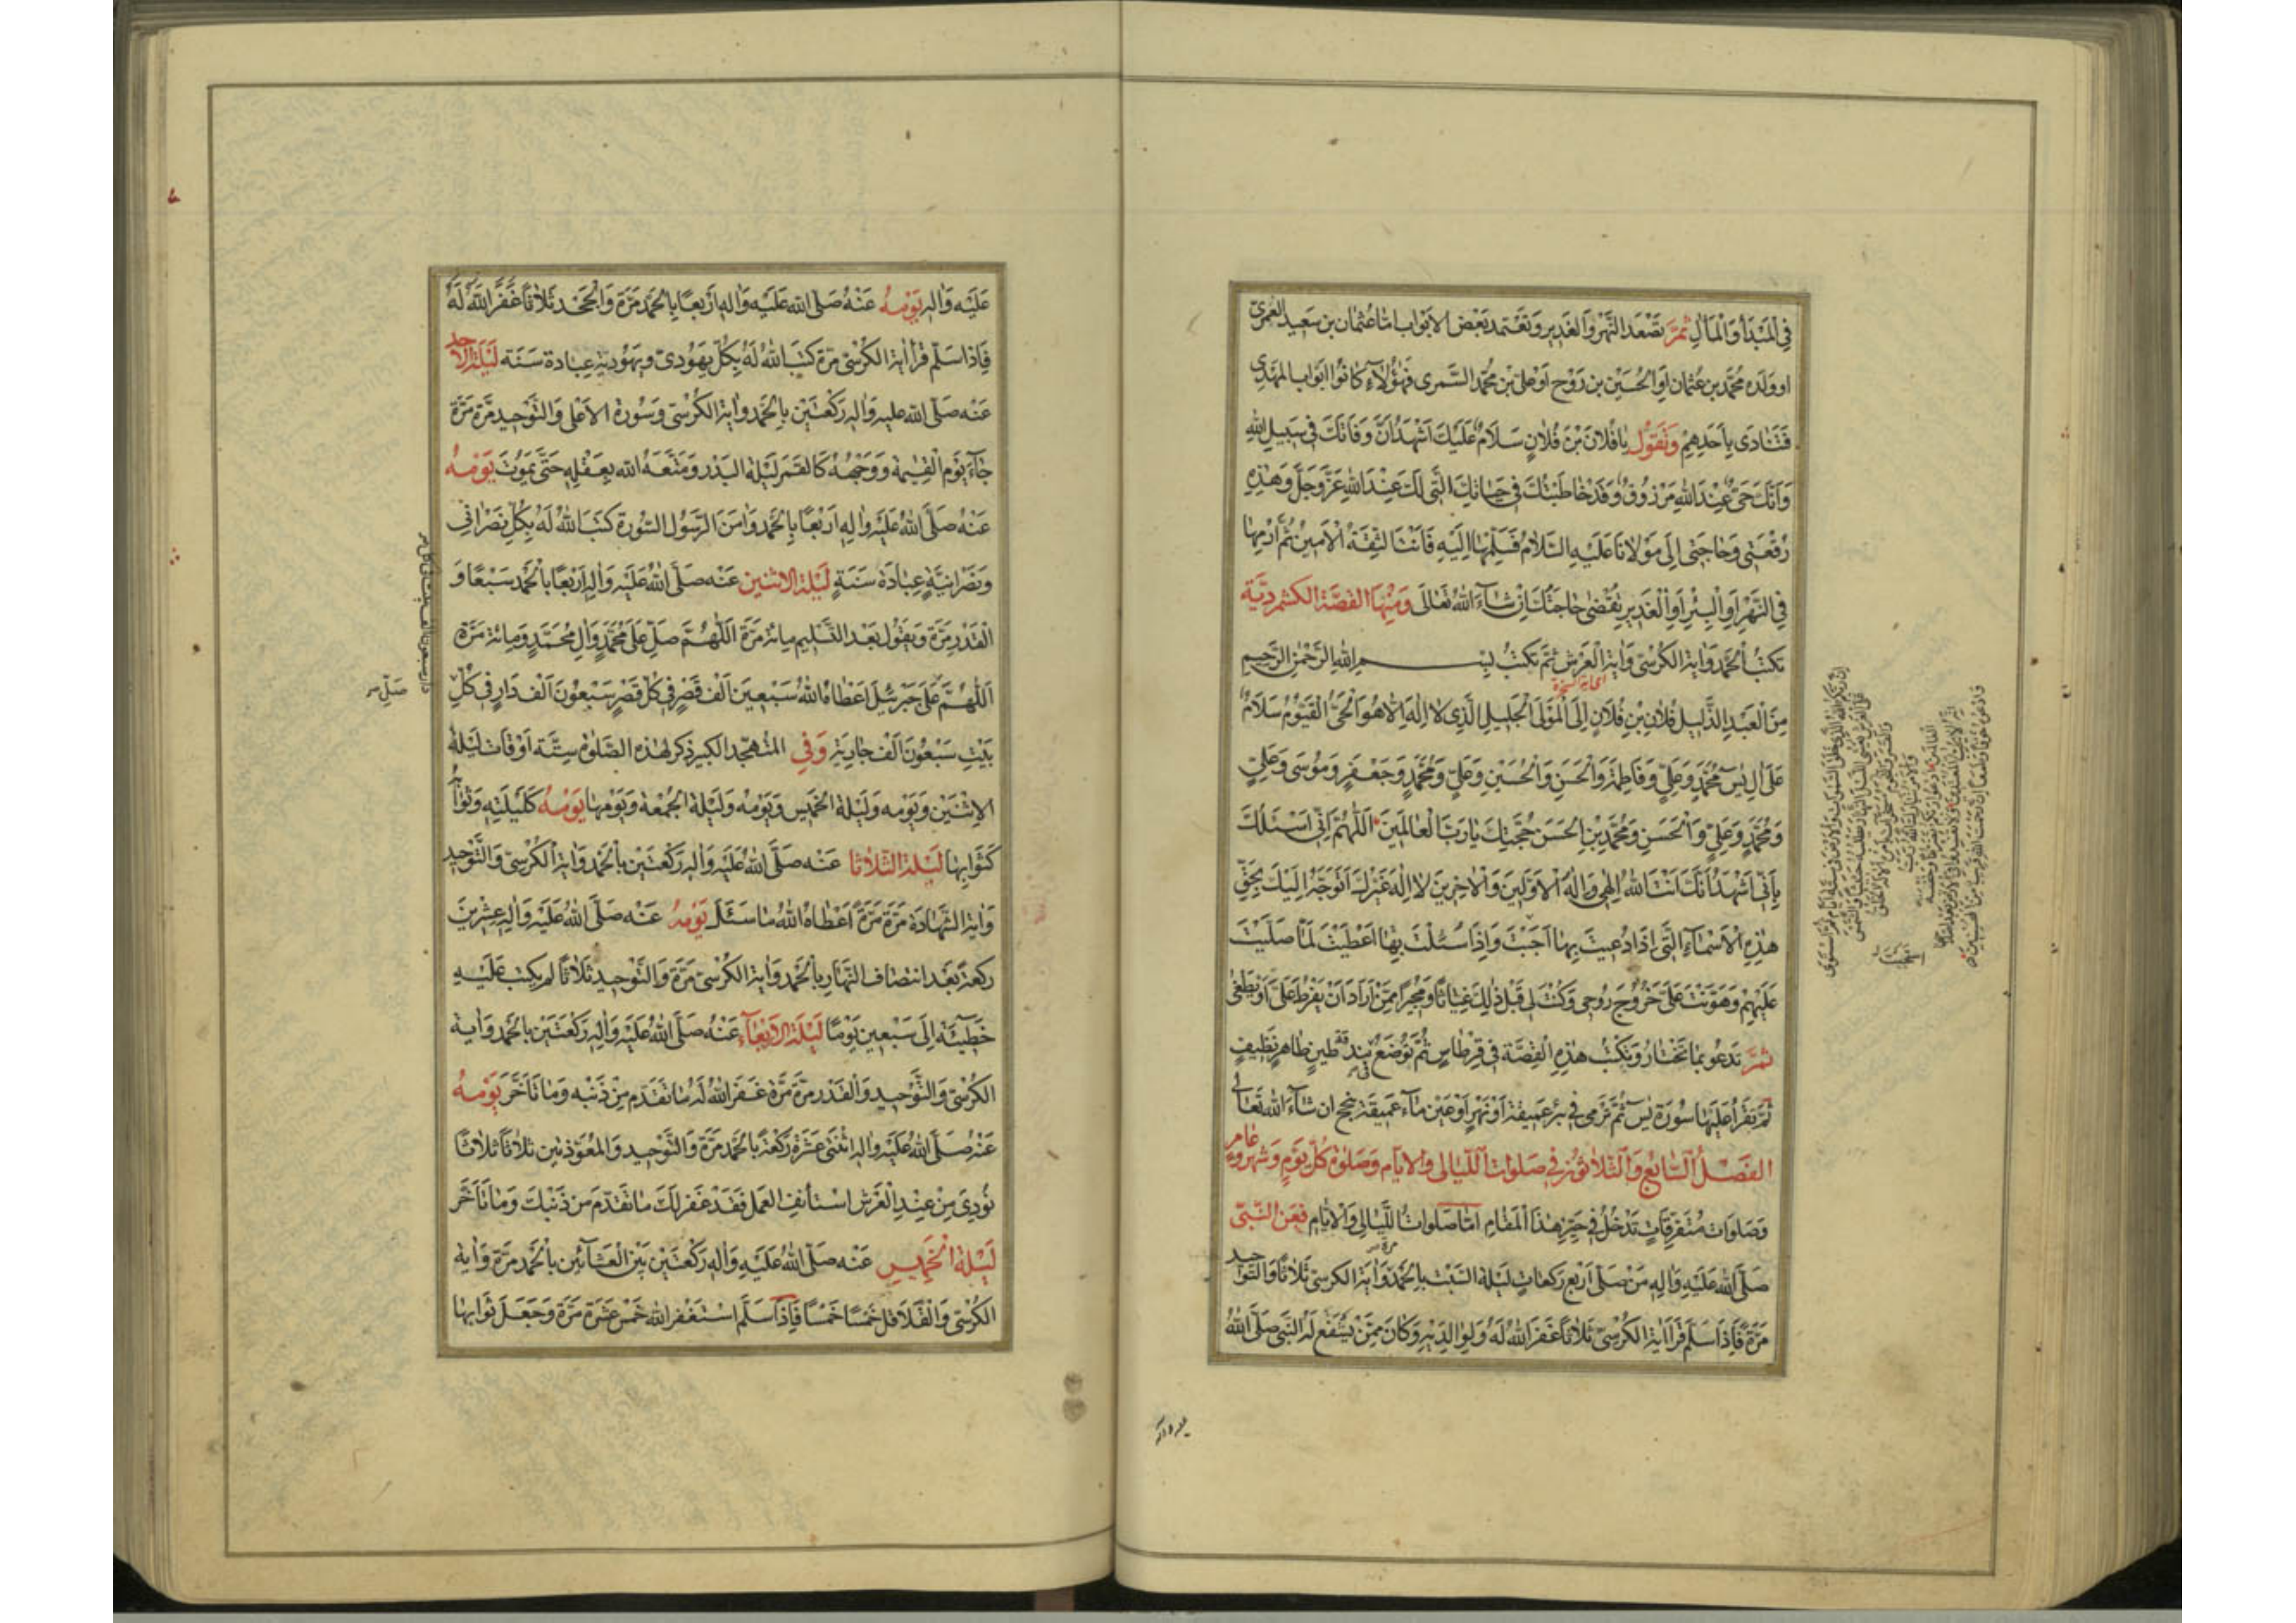 في المبدأ والمآل ثمّ تصعد النهر والغدير وتعتمد بعض الابواب امّا عثمان بن سعيد العمري
او ولده محمّد بن عثمان او الحسين بن روح او علي بن محمّد السّمري فهؤلآء كانوا ابواب المهدي
فتنادى بأحدهم وتقول يا فلان بن فلان سلام عليك اشهد انّ وفاتك في سبيل الله
وانّك حيّ عند الله مرزوق وقد خاطبتك في حياتك الّتي لك عند الله عزّ وجلّ وهذه
رقعتي وحاجتي إلى مولانا عليه السّلام فسلّمها اليه فانت الثقة الامين ثم ارمها
في النّهر او البئر او الغدير تقضى حاجتك ان شآء الله تعالى ومنها القصّة الكشمرديّة
تكتب الحمد واية الكرسي واية العرش ثمّ تكتب بسم الله الرّحمن الرّحيم
من العبد الذّليل فلان بن فلان إلى المولى الجليل الّذي لا اله الّا هو الحيّ القيّوم سلام
على ال يس محمّد وعليّ وفاطمة والحسن والحسين وعليّ ومحمّد وجعفر وموسى وعليّ
ومحمّد وعليّ والحسن ومحمّد بن الحسن حجّتك يا ربّ العالمين اللّهمّ انّي اسئلك
بأنّي اشهد انّك انت الله الهي واله الاوّلين والاخرين لا اله غيرك اتوجّه اليك بحقّ
هذه الاسمآء الّتي اذا دعيت بها اجبت واذا سئلت بها اعطيت لمّا صلّيت
عليهم وهوّنت على خروج روحي وكنت لي قبل ذلك غياثا ومجيرا ممّن اراد ان يفرط علىّ او يطغى
ثمّ تدعو بما تختار وتكتب هذه القصّة في قرطاس ثمّ توضع في بندقة طين طاهر نظيف
ثمّ يقرأ عليها سورة يس ثمّ ترمى في بئر عميقة او نهر او عين مآء عميقة تنجح ان شآء الله تعالى
الفصل السّابع والثّلاثون في صلوات اللّيالي والايّام وصلوة كلّ يوم وشهر وعام
وصلوات متفرقات تدخل في حيّز هذا المقام امّا صلوات اللّيالي والايّام فعن النّبيّ
صلّى الله عليه واله من صلّى اربع ركعات ليلة السّبت بالحمد مرة واية الكرسي ثلاثا والتّوحيد
مرّة فإذا سلّم قرأ اية الكرسيّ ثلاثا غفر الله له ولوالديه وكان ممّن يشفع له النّبي صلّى الله
عليه واله يومه عنه صلّى الله عليه واله اربعا بالحمد مرّة والجحد ثلاثا غفر الله له
فإذا سلّم قرأ اية الكرسيّ مرّة كتب الله له بكلّ يهوديّ ويهوديّة عبادة سنة ليلة الاحد
عنه صلّى الله عليه واله ركعتين بالحمد واية الكرسيّ وسورة الاعلى والتّوحيد مرّة مرّة
جآء يوم القيمة ووجهه كالقمر ليلة البدر ومتّعه الله بعقله حتّى يموت يومه
عنه صلّى الله عليه واله اربعا بالحمد وامن الرّسول السّورة كتب الله له بكلّ نصرانيّ
ونصرانيّة عبادة سنة ليلة الاثنين عنه صلّى الله عليه واله اربعا بالحمد سبعا و
القدر مرّة ويقول بعد التّسليم مائة مرّة اللّهمّ صلّ على محمّد وال محمّد ومائة مرّة
اللّهمّ على جبرئيل اعطاه الله سبعين الف قصر في كلّ قصر سبعون الف دار في كلّ
صلّ
بيت سبعون الف جارية وفي المتهجّد الكبير ذكر لهذه الصّلوة ستّة اوقات ليلة
الاثنين ويومه وليلة الخميس ويومه وليلة الجمعة ويومها يومه كليلته وثوابها
كثوابها ليلة الثّلاثا عنه صلّى الله عليه واله ركعتين بالحمد واية الكرسيّ والتّوحيد
واية الشّهادة مرّة مرّة اعطاه الله ما سئل يومه عنه صلّى الله عليه واله عشرين
ركعة بعد انتصاف النّهار بالحمد واية الكرسيّ مرّة والتّوحيد ثلاثا لم يكتب عليه
خطيئة إلى سبعين يوما ليلة الاربعآء عنه صلّى الله عليه واله ركعتين بالحمد واية
الكرسيّ والتّوحيد والقدر مرّة مرّة غفر الله له ما تقدّم من ذنبه وما تأخّر يومه
عنه صلّى الله عليه واله اثنتي عشرة ركعة بالحمد مرّة والتّوحيد والمعوّذتين ثلاثا ثلاثا
نودي من عند العرش استأنف العمل فقد غفر لك ما تقدّم من ذنبك وما تأخّر
ليلة الخميس عنه صلّى الله عليه واله ركعتين بين العشائين بالحمد مرّة واية
الكرسيّ والقلاقل خمسا خمسا فإذا سلّم استغفر الله خمس عشرة مرّة وجعل ثوابها